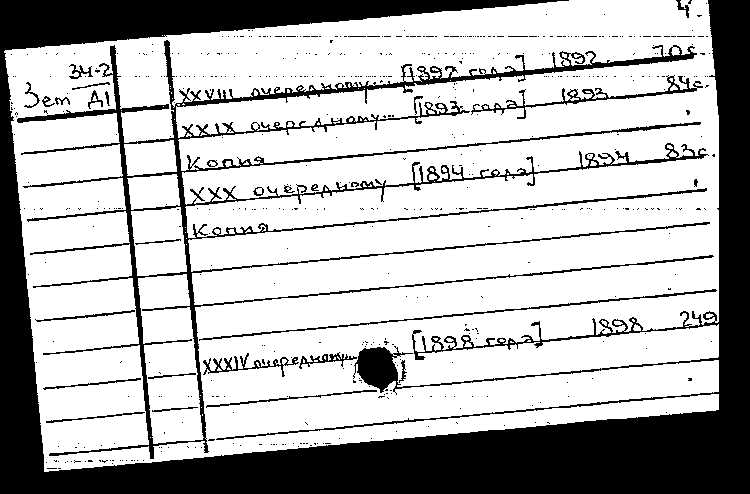 4.
Зет 34-2
Д1
XXVIII очередному... [1892 года] 1892. 70с.
XXIX очередному... [1893 года] 1893. 84с.
Копия
XXX очередному [1894 года] 1894. 83с.
Копия.
XXXIV очередному... [1898 года] 1898. 249